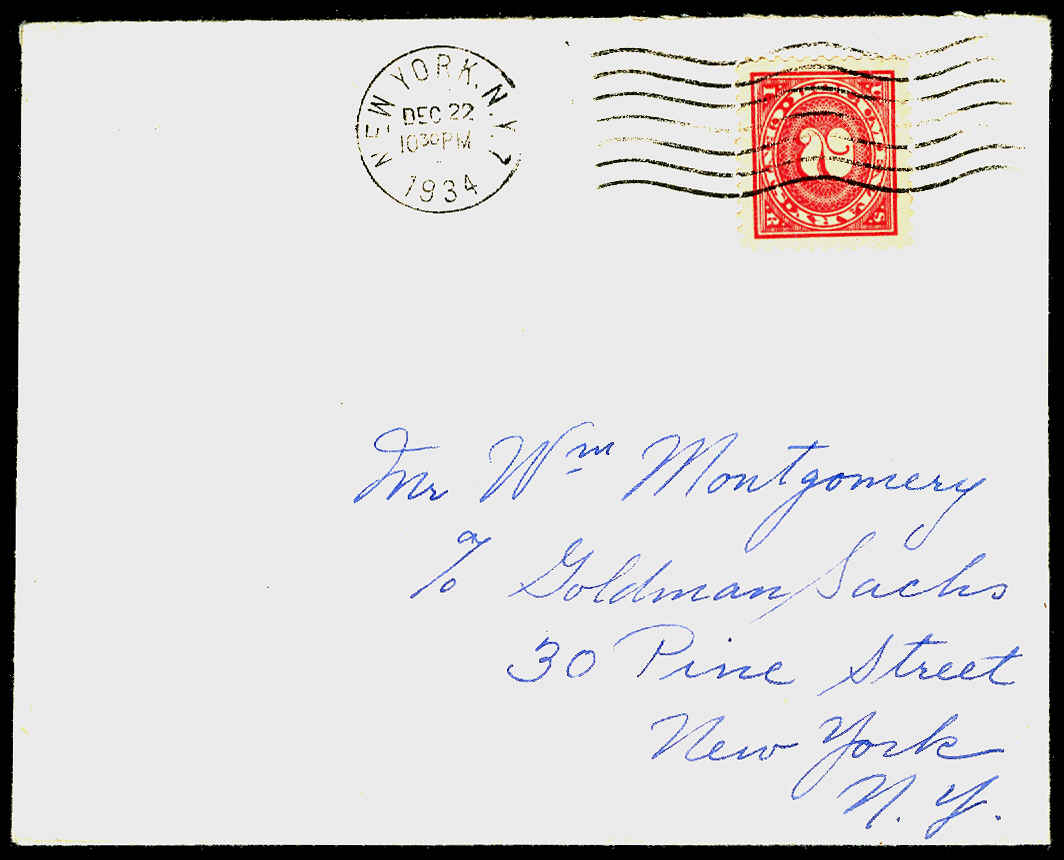 NEW YORK, N.Y. 7
DEC 22
10 30 PM
1934
2
Mr Wm Montgomery
c/o Goldman Sachs
30 Pine Street
New York
N. Y.